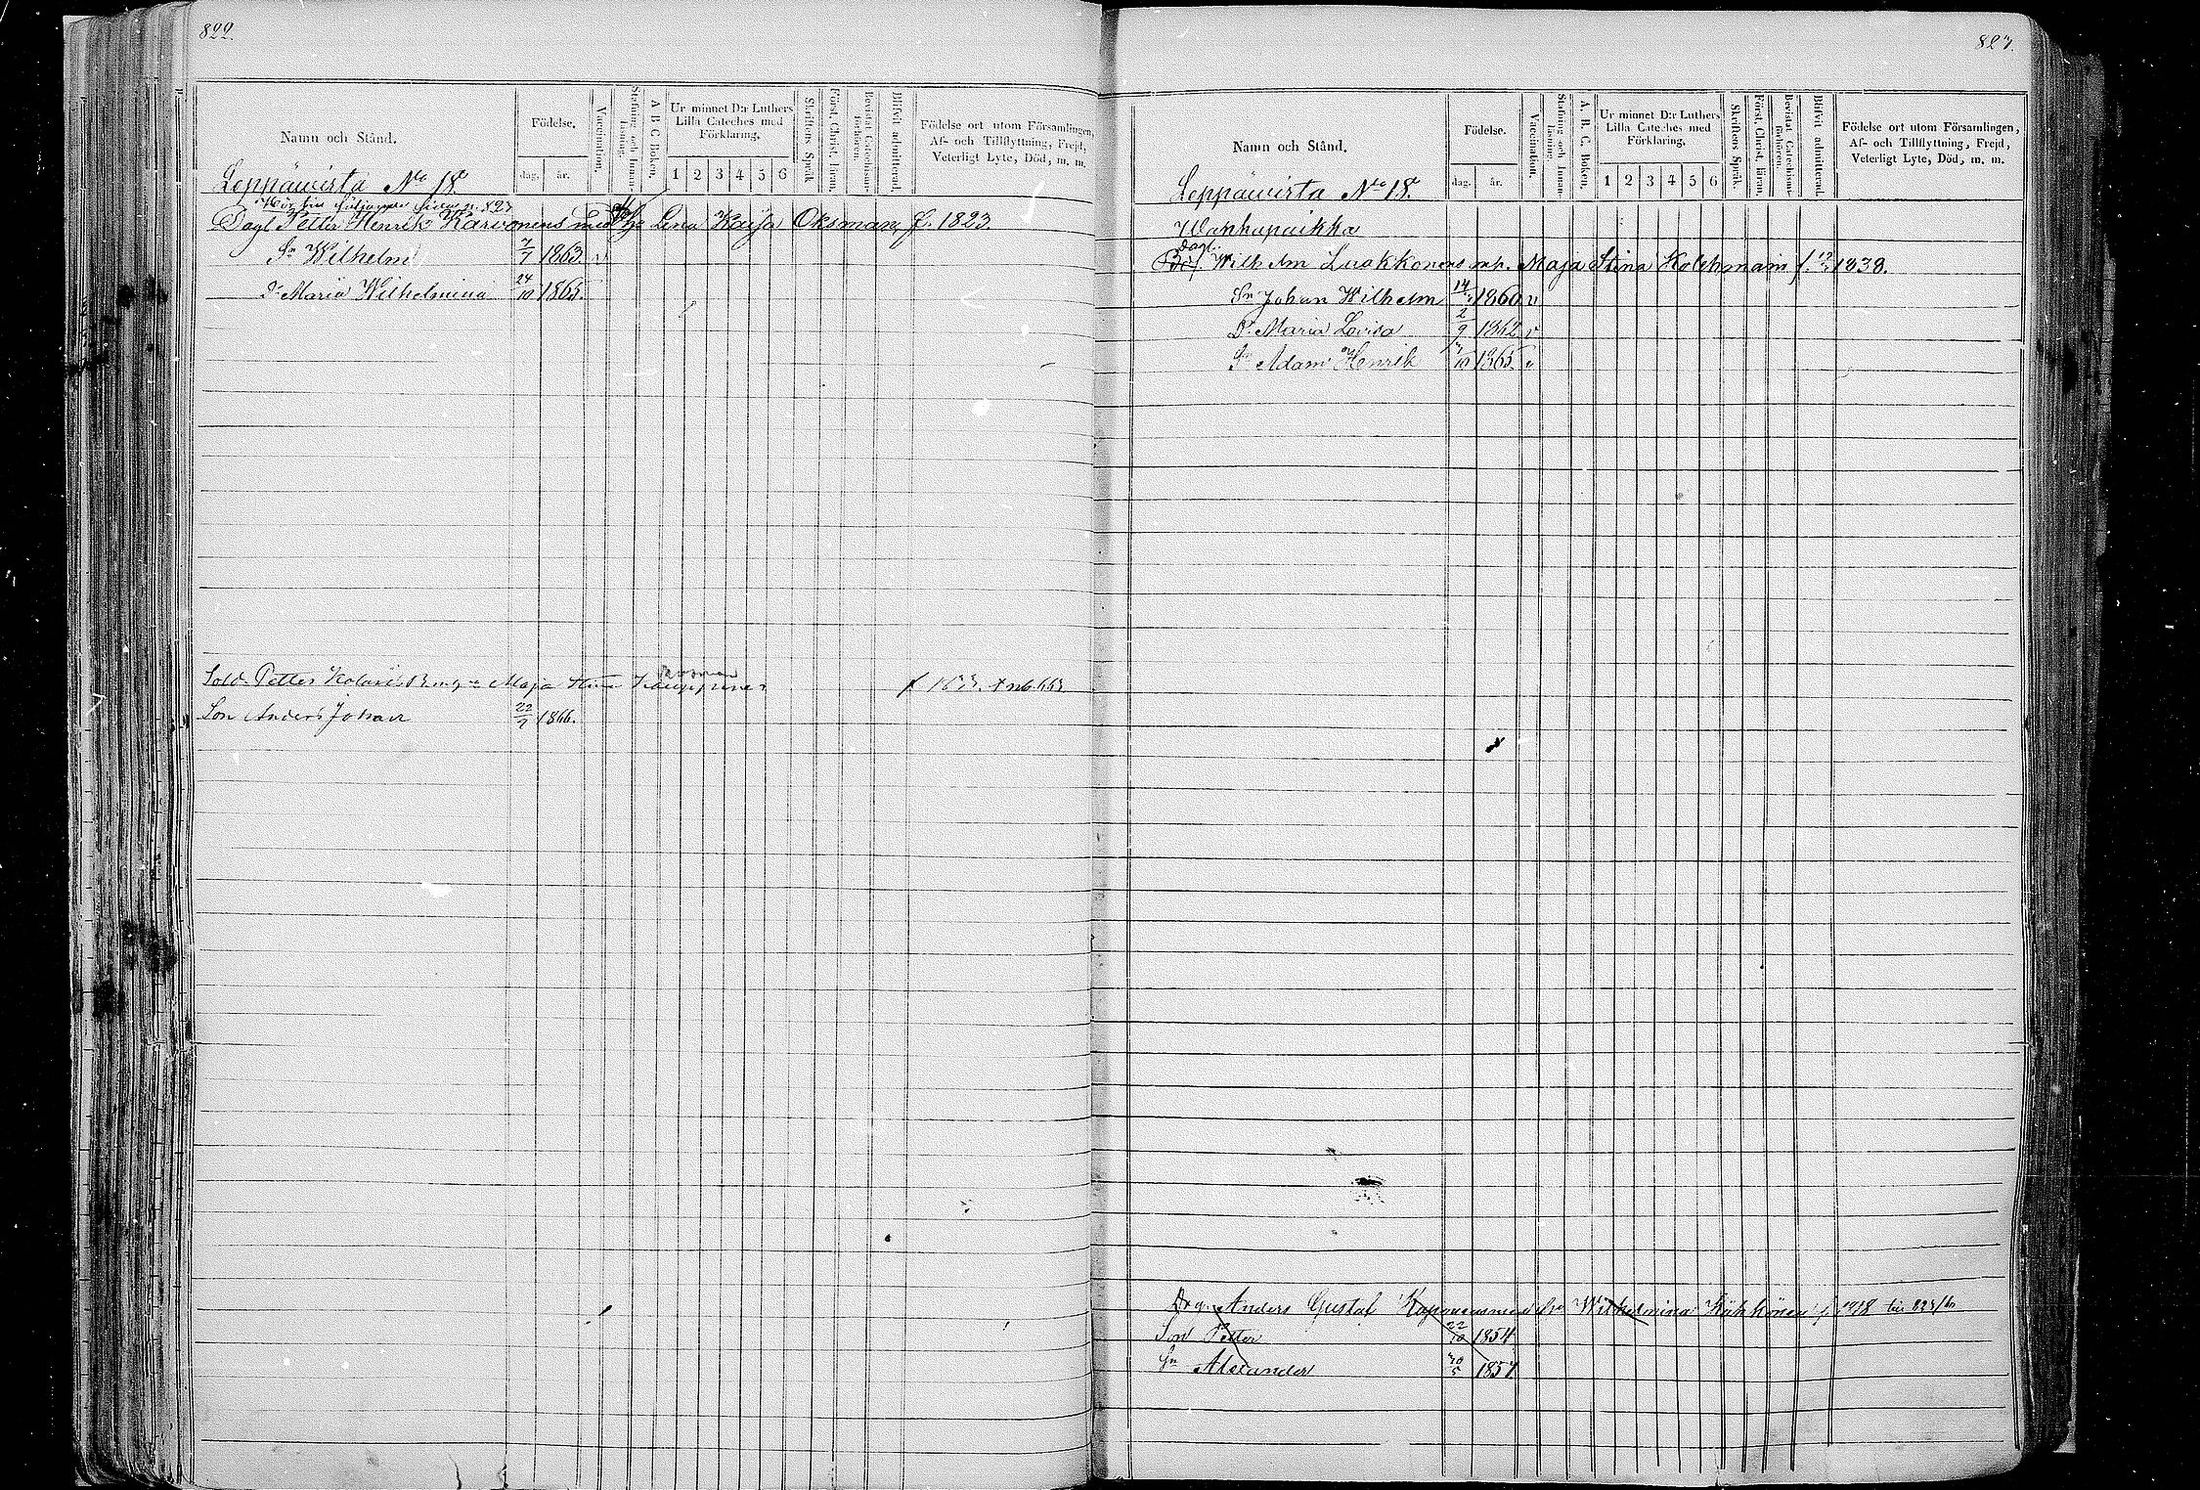 822.
Namn och Stånd.
Födelse.
dag.
år.
Vaccination.
Stafning och Innan-läsning.
A B C Boken.
Ur minnet D:r Luthers Lilla Cateches med Förklaring.
1 2 3 4 5 6
Skriftens Språk
Först. Christ. läran.
Bevistat Catechismi-förhören.
Blifvit admitterad.
Födelse ort utom Församlingen,
Af- och Tillflyttning, Frejd,
Veterligt Lyte, Död, m. m.
Leppäwirta No 18
Dagl Petter Henrik Karvonens med Lena Kaisa Oksman, f. 1823.
Sn Wilhelm 7/7 1863. v
Dr Maria Wilhelmina 24/10 1865.
Sold. Petter Maja Stina Kauppinen
Son Anders Johan 22/7 1866.
823.
Namn och Stånd.
Födelse.
dag.
år.
Vaccination.
Stafning och Innan-läsning.
A. B. C. Boken.
Ur minnet D:r Luthers Lilla Cateches med Förklaring.
1 2 3 4 5 6
Skriftens Språk.
Först. Christ. läran.
Bevistat Catechismi-förhören.
Blifvit admitterad.
Födelse ort utom Församlingen,
Af- och Tillflyttning, Frejd,
Veterligt Lyte, Död, m. m.
Leppäwirta No 18.
Wanhapaikka
Dagl.
Wilhelm Luukkonens Maja Stina Kolehmain f. 1838.
Sn Johan Wilhelm 1860 v
Dr Maria Lovisa 2/9 1862 v
Sn Adam Henrik 1865 v
Anders Gustaf Wilhelmina
Son Petter 22/10 1854
Sn Alexander 1857